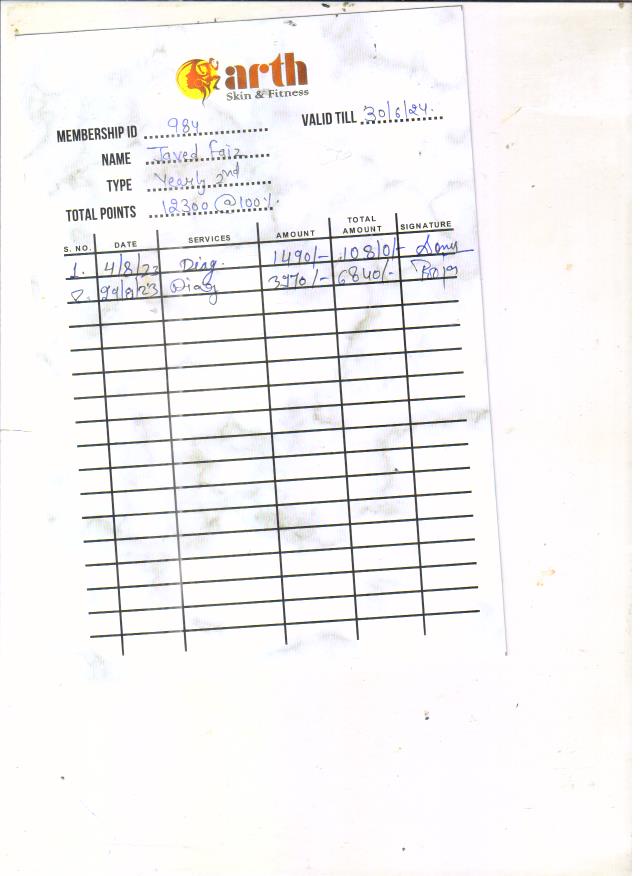 arth
Skin & Fitness
MEMBERSHIP ID 984
VALID TILL 30/6/24.
NAME Javed Faiz
TYPE Yearly 2nd
TOTAL POINTS 12300 @100%.
S. NO. DATE SERVICES AMOUNT TOTAL AMOUNT SIGNATURE
1. 4/8/23 1490/- 10810/-
2. /8/23 3970/- 6840/-